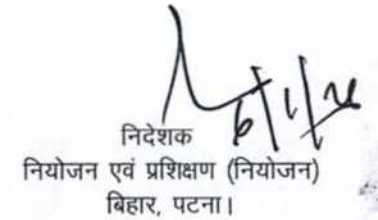 निदेशक
नियोजन एवं प्रशिक्षण (नियोजन)
बिहार, पटना।